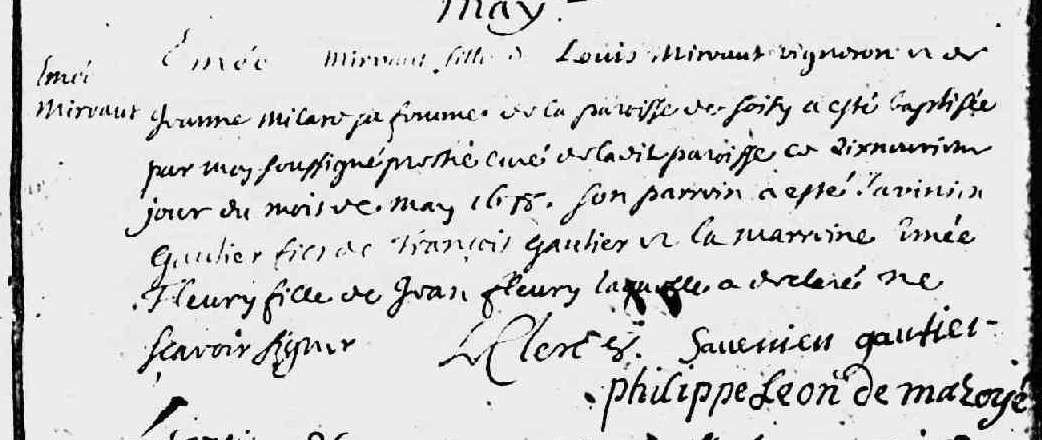 may
Emée Mirvaut fille d Louis Mirvaut vigneron et de
Emée
Mirvaut
Jeanne Milard sa femme de la paroisse de soisy a esté baptisée
par moy soussigné prestre curé de ladit paroisse ce dixneuviem
jour du mois de may 1678. son parrein a esté Savinien
Gautier fils de François Gautier et la marreine Emée
Fleury fille de Jean fleury laquelle a declaré ne
scavoir signer
LeClerc Savenien gautier
philippe Leon de